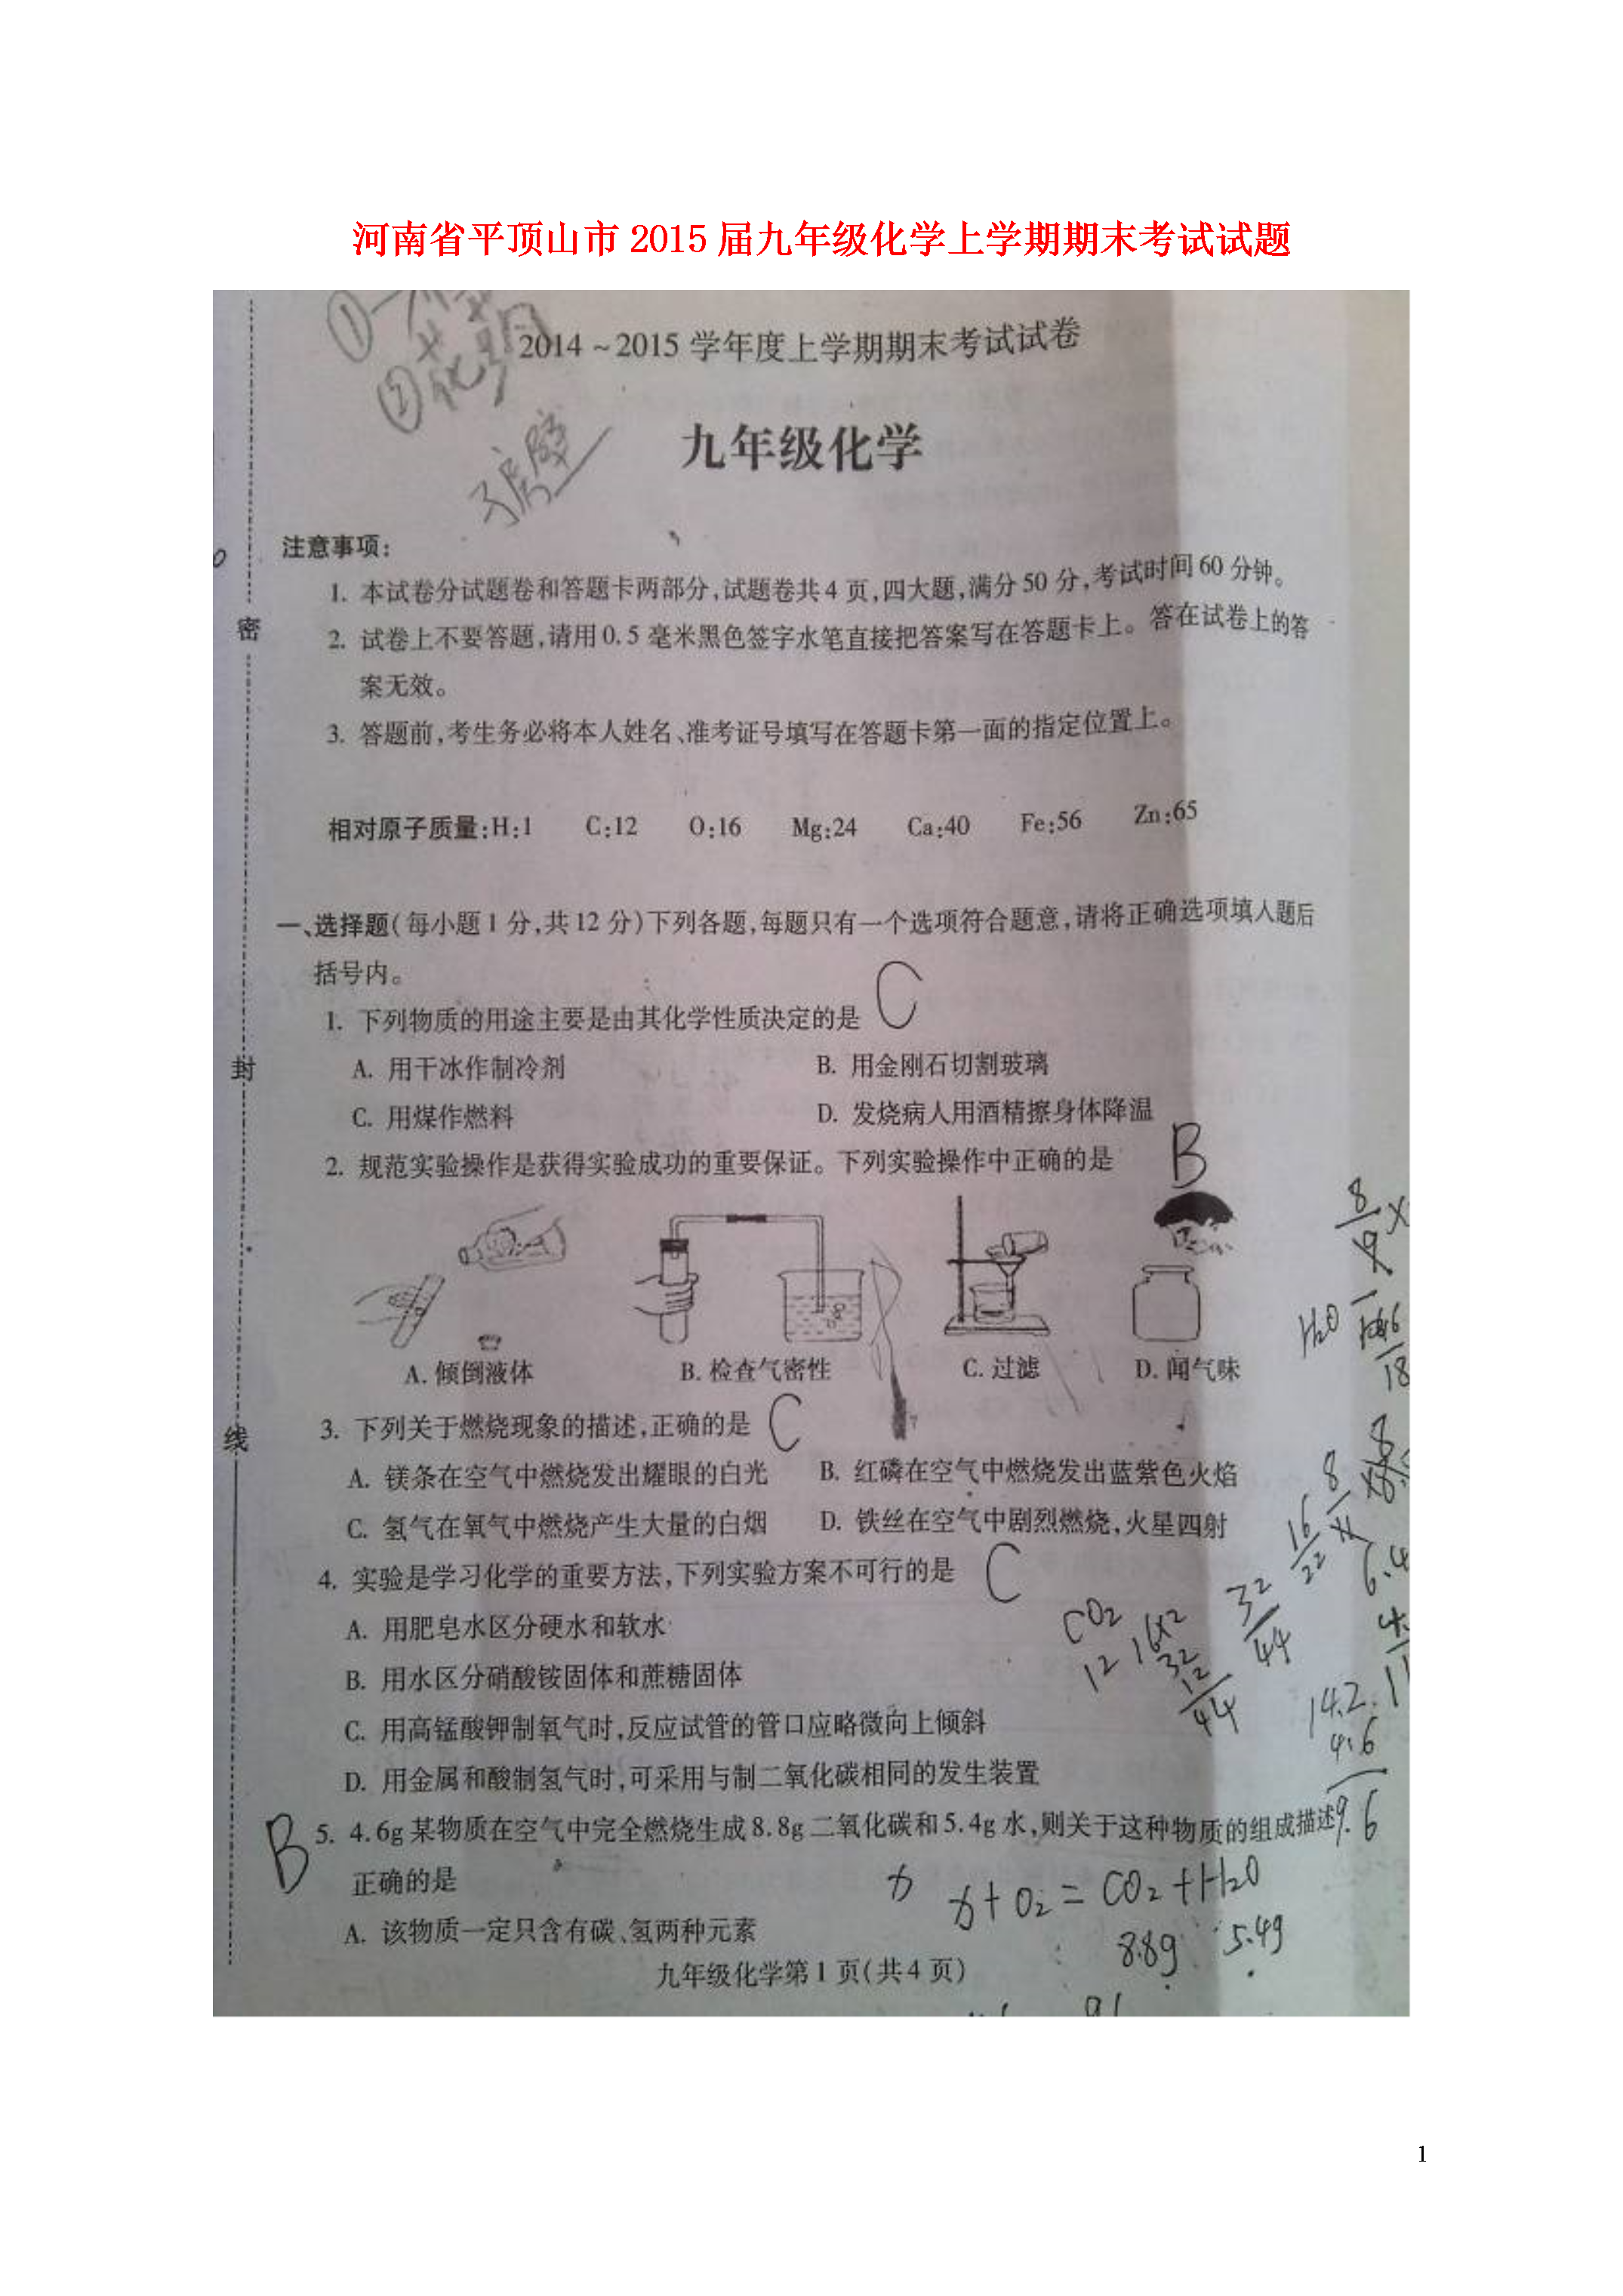 河南省平顶山市 2015 届九年级化学上学期期末考试试题
2014～2015 学年度上学期期末考试试卷
九年级化学
注意事项:
1. 本试卷分试题卷和答题卡两部分,试题卷共 4 页,四大题,满分 50 分,考试时间 60 分钟。
2. 试卷上不要答题,请用 0.5 毫米黑色签字水笔直接把答案写在答题卡上。答在试卷上的答
案无效。
3. 答题前,考生务必将本人姓名、准考证号填写在答题卡第一面的指定位置上。
密
封
线
相对原子质量:H:1 C:12 O:16 Mg:24 Ca:40 Fe:56 Zn:65
一、选择题(每小题 1 分,共 12 分)下列各题,每题只有一个选项符合题意,请将正确选项填入题后
括号内。
1. 下列物质的用途主要是由其化学性质决定的是 C
A. 用干冰作制冷剂 B. 用金刚石切割玻璃
C. 用煤作燃料 D. 发烧病人用酒精擦身体降温
2. 规范实验操作是获得实验成功的重要保证。下列实验操作中正确的是 B
A. 倾倒液体 B. 检查气密性 C. 过滤 D. 闻气味
3. 下列关于燃烧现象的描述,正确的是 C
A. 镁条在空气中燃烧发出耀眼的白光 B. 红磷在空气中燃烧发出蓝紫色火焰
C. 氢气在氧气中燃烧产生大量的白烟 D. 铁丝在空气中剧烈燃烧,火星四射
4. 实验是学习化学的重要方法,下列实验方案不可行的是 C
A. 用肥皂水区分硬水和软水
B. 用水区分硝酸铵固体和蔗糖固体
C. 用高锰酸钾制氧气时,反应试管的管口应略微向上倾斜
D. 用金属和酸制氢气时,可采用与制二氧化碳相同的发生装置
B 5. 4.6g 某物质在空气中完全燃烧生成 8.8g 二氧化碳和 5.4g 水,则关于这种物质的组成描述
正确的是
A. 该物质一定只含有碳、氢两种元素
九年级化学第 1 页(共 4 页)
H₂O
18
CO₂
12 16×2
32
12
44
32
44
16
22
14.2
4.6
9.6
x + O₂ = CO₂ + H₂O
8.8g 5.4g
1